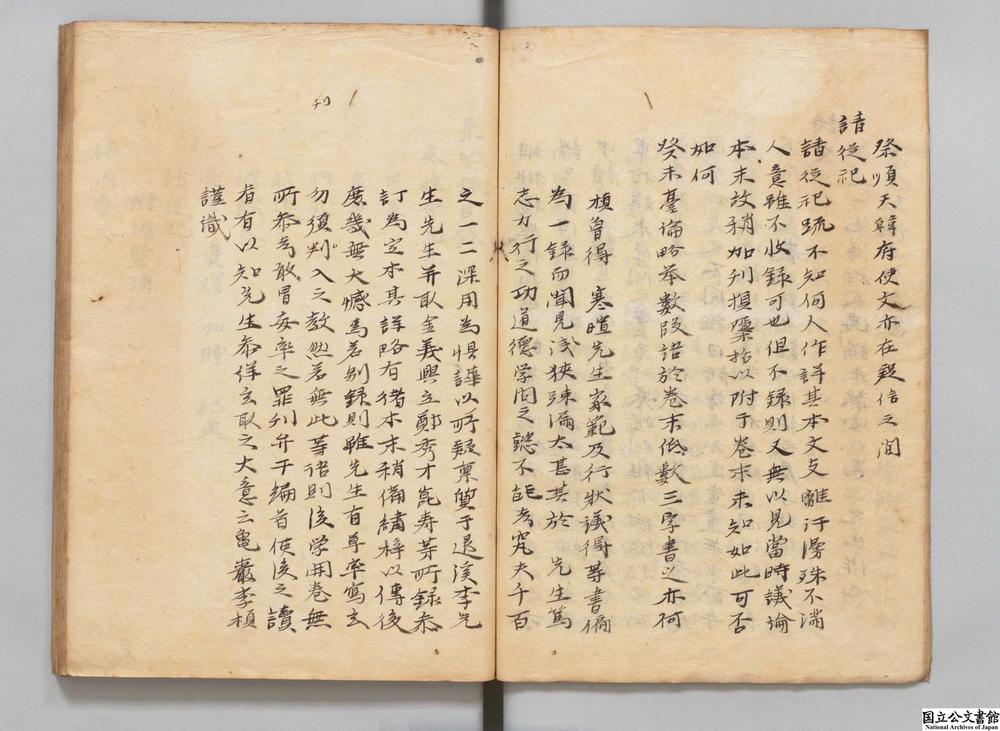 祭順天韓府使文亦在疑信之間
請從祀
請從祀疏不知何人作詳其本文支離汗漫殊不滿
人意雖不收録可也但不録則又無以見當時議論
本末故稍加刊損檃括以附于卷末未知如此可否
如何
癸未臺論略举數段語於卷末低數三字書之亦何
楨曽得 寒暄先生家範及行狀議得等書偏
為一録而聞見浅狭殊漏太甚其於 先生篤
志力行之功道德学問之懿不能考究夫千百
之一二深用為惧謹以所疑稟質于退溪李先
生先生并取金義興立鄭秀才崑寿等所録叅
訂為定本其詳略有倫本末稍備繡梓以傳後
庶幾無大憾焉若别録則雖先生有草率寫去
勿復判入之教然若無此等语則後学開卷無
所叅考敢冒妄率之罪刊弁于編首使後之讀
者有以知先生叅详去取之大意云龜巖李楨
謹識
刊
国立公文書館
National Archives of Japan